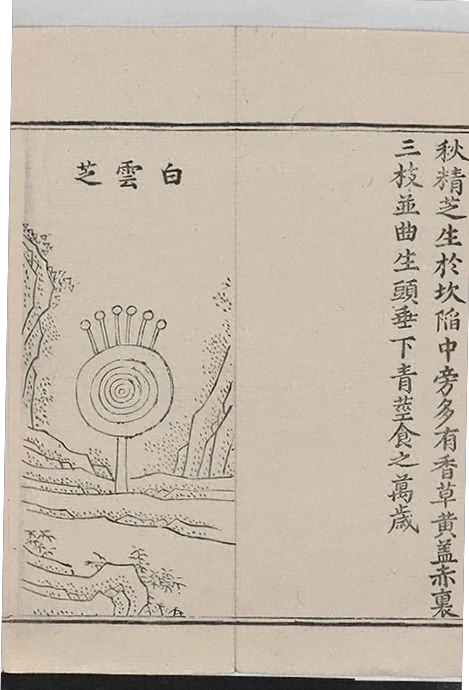 秋精芝生於坎陷中旁多有香草黄盖赤裏
三枝並曲生頭垂下青莖食之萬歲
白雲芝